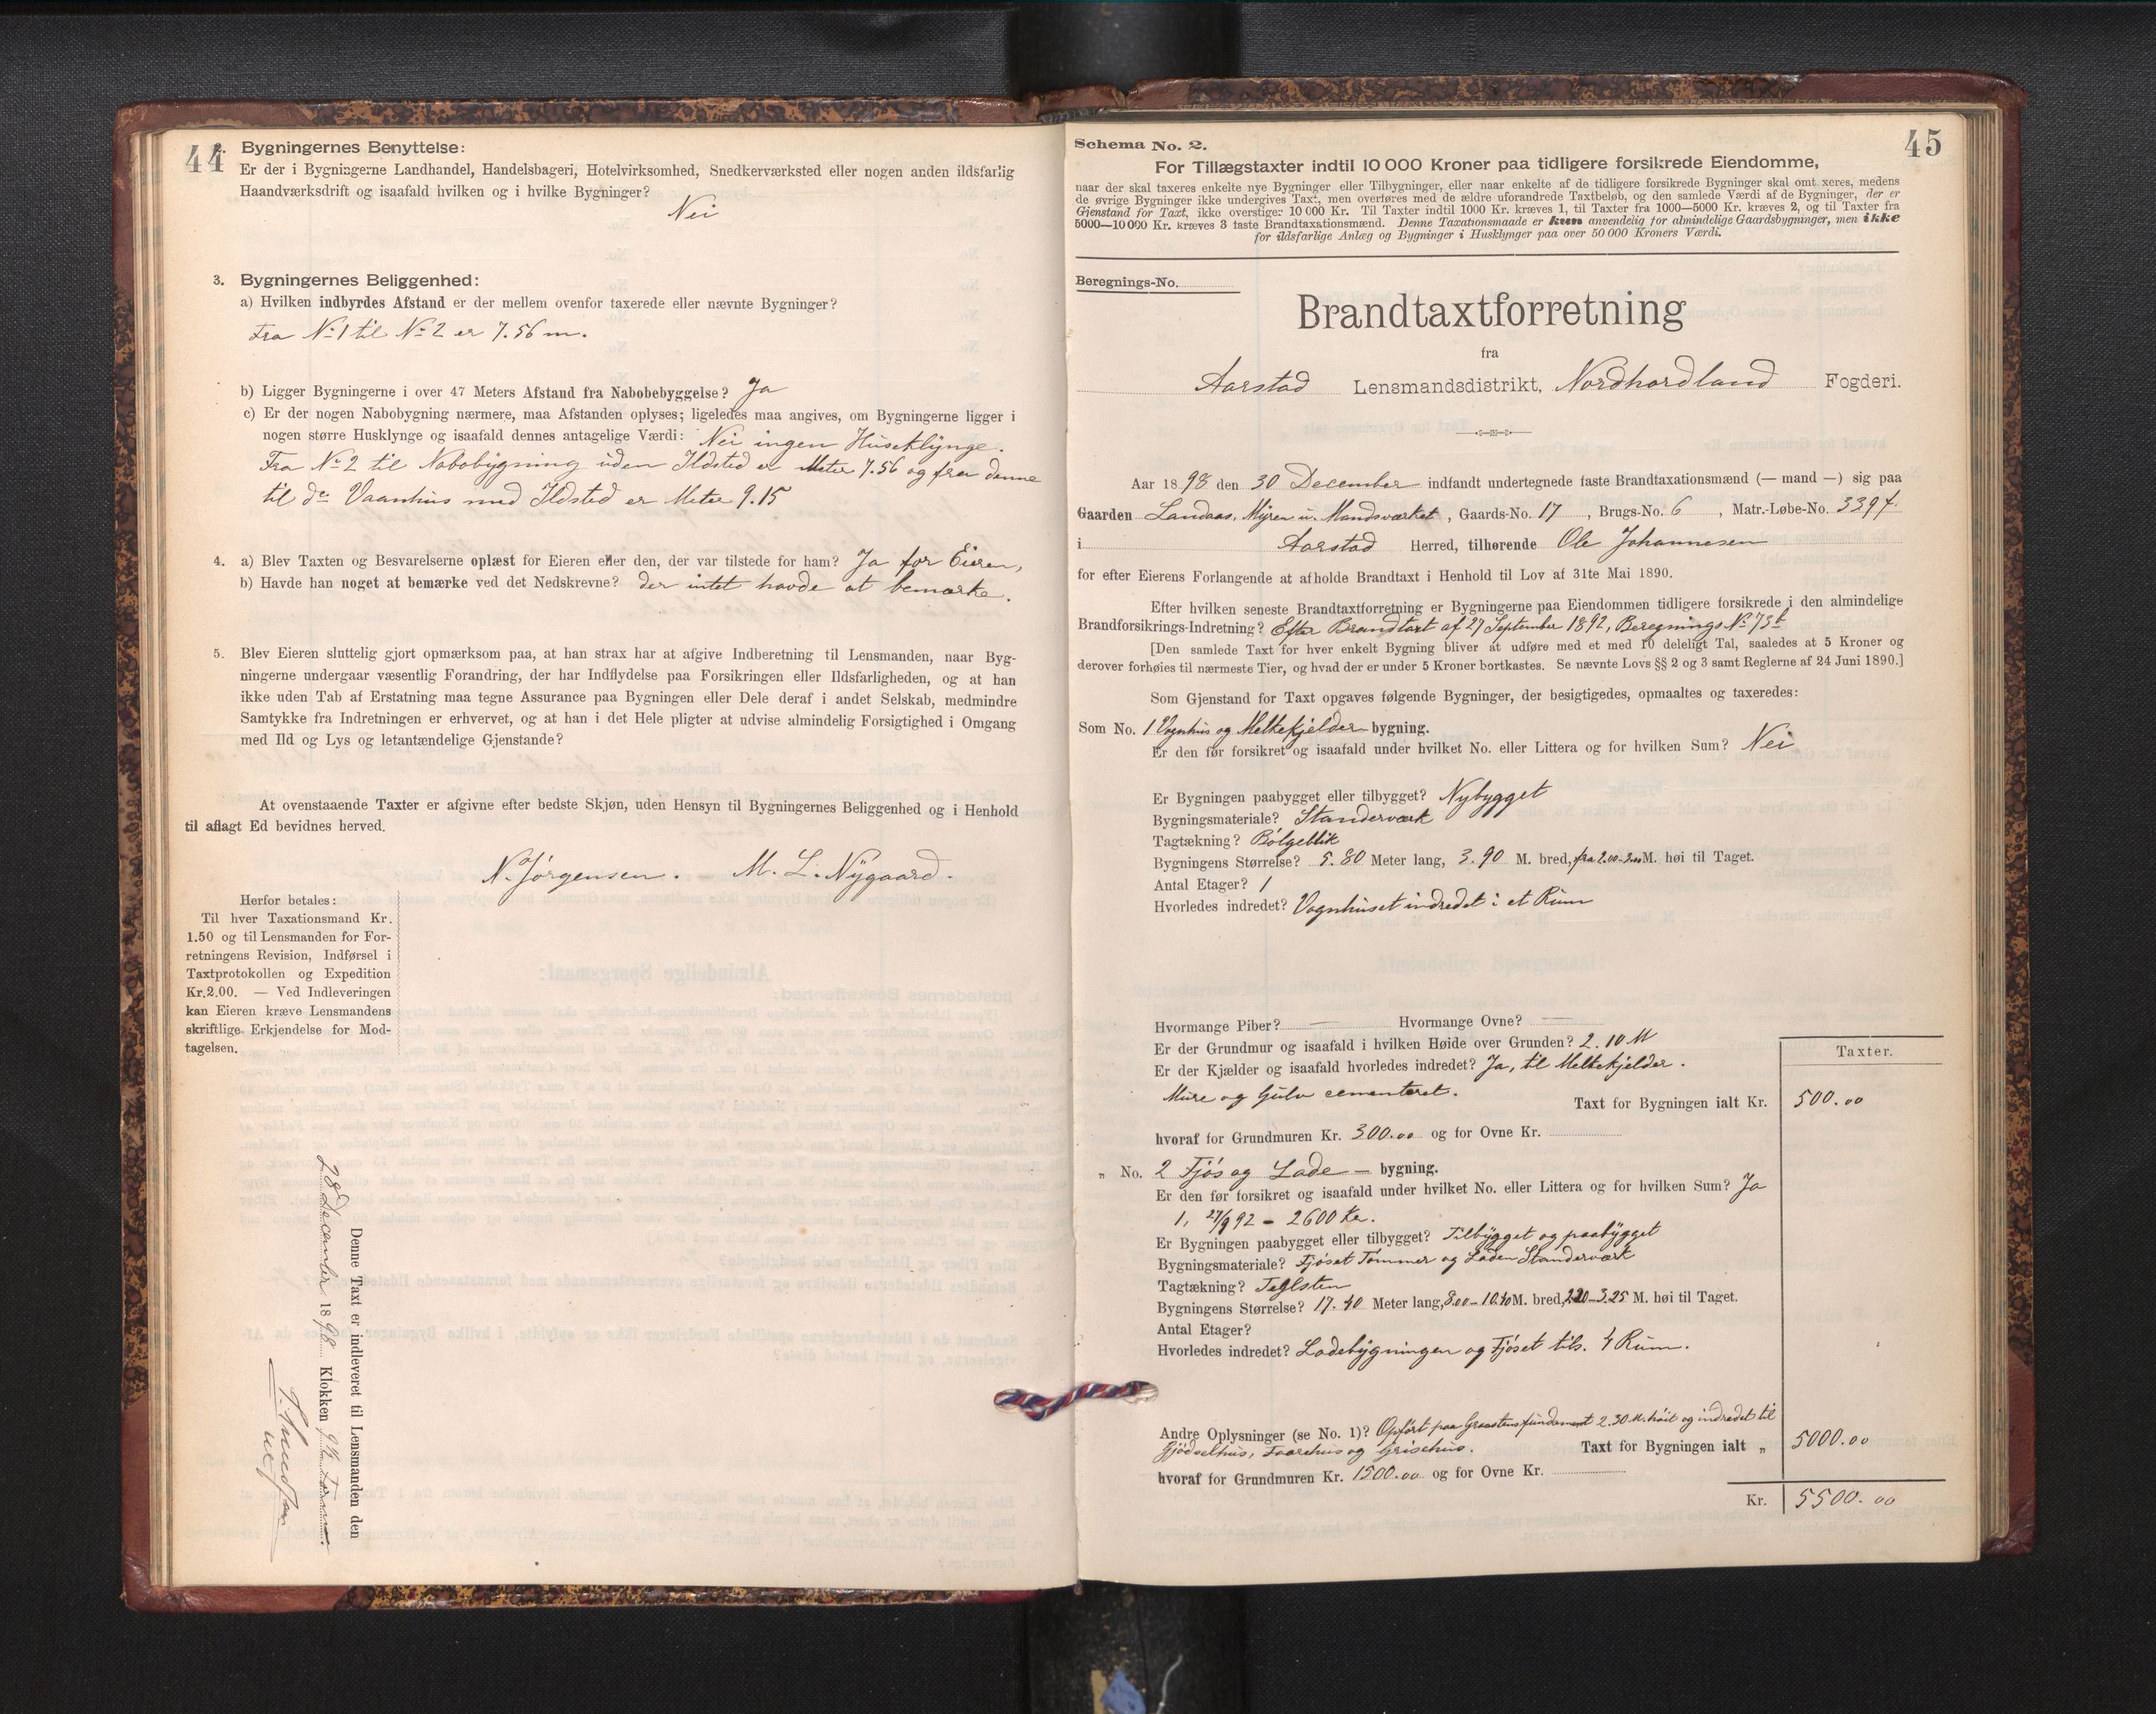 44
2. Bygningernes Benyttelse:
Er der i Bygningerne Landhandel, Handelsbageri, Hotelvirksomhed, Snedkerværksted eller nogen anden ildsfarlig
Haandværksdrift og isaafald hvilken og i hvilke Bygninger?
Nei
3. Bygningernes Beliggenhed:
a) Hvilken indbyrdes Afstand er der mellem ovenfor taxerede eller nævnte Bygninger?
Fra No 1 til No 2 er 7.56 m.
b) Ligger Bygningerne i over 47 Meters Afstand fra Nabobebyggelse? Ja
c) Er der nogen Nabobygning nærmere, maa Afstanden oplyses; ligeledes maa angives, om Bygningerne ligger i
nogen større Husklynge og isaafald dennes antagelige Værdi: Nei ingen Huseklynge.
Fra No 2 til Nabobygning uden Ildsted er Meter 7.56 og fra denne
til do Vaanhus med Ildsted er Meter 9.15
4. a) Blev Taxten og Besvarelserne oplæst for Eieren eller den, der var tilstede for ham? Ja for Eieren,
b) Havde han noget at bemærke ved det Nedskrevne? der intet havde at bemærke.
5. Blev Eieren sluttelig gjort opmærksom paa, at han strax har at afgive Indberetning til Lensmanden, naar Byg-
ningerne undergaar væsentlig Forandring, der har Indflydelse paa Forsikringen eller Ildsfarligheden, og at han
ikke uden Tab af Erstatning maa tegne Assurance paa Bygningen eller Dele deraf i andet Selskab, medmindre
Samtykke fra Indretningen er erhvervet, og at han i det Hele pligter at udvise almindelig Forsigtighed i Omgang
med Ild og Lys og letantændelige Gjenstande?
At ovenstaaende Taxter er afgivne efter bedste Skjøn, uden Hensyn til Bygningernes Beliggenhed og i Henhold
til aflagt Ed bevidnes herved.
N. Jørgensen. M. L. Nygaard.
Herfor betales:
Til hver Taxationsmand Kr.
1.50 og til Lensmanden for For-
retningens Revision, Indførsel i
Taxtprotokollen og Expedition
Kr. 2.00. — Ved Indleveringen
kan Eieren kræve Lensmandens
skriftlige Erkjendelse for Mod-
tagelsen.
Denne Taxt er indleveret til Lensmanden den
28 December 1898 Klokken 9 1/2 Form.
45
Schema No. 2.
For Tillægstaxter indtil 10 000 Kroner paa tidligere forsikrede Eiendomme,
naar der skal taxeres enkelte nye Bygninger eller Tilbygninger, eller naar enkelte af de tidligere forsikrede Bygninger skal omt xeres, medens
de øvrige Bygninger ikke undergives Taxt, men overføres med de ældre uforandrede Taxtbeløb, og den samlede Værdi af de Bygninger, der er
Gjenstand for Taxt, ikke overstiger 10 000 Kr. Til Taxter indtil 1000 Kr. kræves 1, til Taxter fra 1000—5000 Kr. kræves 2, og til Taxter fra
5000—10 000 Kr. kræves 3 faste Brandtaxationsmænd. Denne Taxationsmaade er kun anvendelig for almindelige Gaardsbygninger, men ikke
for ildsfarlige Anlæg og Bygninger i Husklynger paa over 50 000 Kroners Værdi.
Beregnings-No.
Brandtaxtforretning
fra
Aarstad Lensmandsdistrikt, Nordhordland Fogderi.
Aar 1898 den 30 December indfandt undertegnede faste Brandtaxationsmænd (— mand —) sig paa
Gaarden Landaas, Myren u. Mandsværket, Gaards-No. 17, Brugs-No. 6, Matr.-Løbe-No. 339 f.
i Aarstad Herred, tilhørende Ole Johannesen
for efter Eierens Forlangende at afholde Brandtaxt i Henhold til Lov af 31te Mai 1890.
Efter hvilken seneste Brandtaxtforretning er Bygningerne paa Eiendommen tidligere forsikrede i den almindelige
Brandforsikrings-Indretning? Efter Brandtaxt af 27 September 1892, Beregnings No 73b
[Den samlede Taxt for hver enkelt Bygning bliver at udføre med et med 10 deleligt Tal, saaledes at 5 Kroner og
derover forhøies til nærmeste Tier, og hvad der er under 5 Kroner bortkastes. Se nævnte Lovs §§ 2 og 3 samt Reglerne af 24 Juni 1890.]
Som Gjenstand for Taxt opgaves følgende Bygninger, der besigtigedes, opmaaltes og taxeredes:
Som No. 1 Vognhus og Melkekjelder- bygning.
Er den før forsikret og isaafald under hvilket No. eller Littera og for hvilken Sum? Nei
Er Bygningen paabygget eller tilbygget? Nybygget
Bygningsmateriale? Standerværk
Tagtækning? Bølgeblik
Bygningens Størrelse? 5.80 Meter lang, 3.90 M. bred, fra 2.00-3.00 M. høi til Taget.
Antal Etager? 1
Hvorledes indredet? Vognhuset indredet i et Rum
Hvormange Piber? — Hvormange Ovne? —
Er der Grundmur og isaafald i hvilken Høide over Grunden? 2.10 M
Er der Kjælder og isaafald hvorledes indredet? Ja, til Melkekjelder.
Mure og Gulv cementeret.
Taxter.
Taxt for Bygningen ialt Kr. 500.00
hvoraf for Grundmuren Kr. 300.00 og for Ovne Kr.
„ No. 2 Fjøs og Lade — bygning.
Er den før forsikret og isaafald under hvilket No. eller Littera og for hvilken Sum? Ja
1, 27/9 92 - 2600 Kr.
Er Bygningen paabygget eller tilbygget? Tilbygget og paabygget
Bygningsmateriale? Fjøset Tømmer og Laden Standerværk
Tagtækning? Teglsten
Bygningens Størrelse? 17.40 Meter lang, 8.00-10.40 M. bred, 2.20-3.25 M. høi til Taget.
Antal Etager?
Hvorledes indredet? Ladebygningen og Fjøset tils. 4 Rum.
Andre Oplysninger (se No. 1)? Opført paa Graastensfundament 2.30 M. høit og indredet til
Gjødselhus, Faarehus og Grisehus. Taxt for Bygningen ialt „ 5000.00
hvoraf for Grundmuren Kr. 1500.00 og for Ovne Kr.
Kr. 5500.00